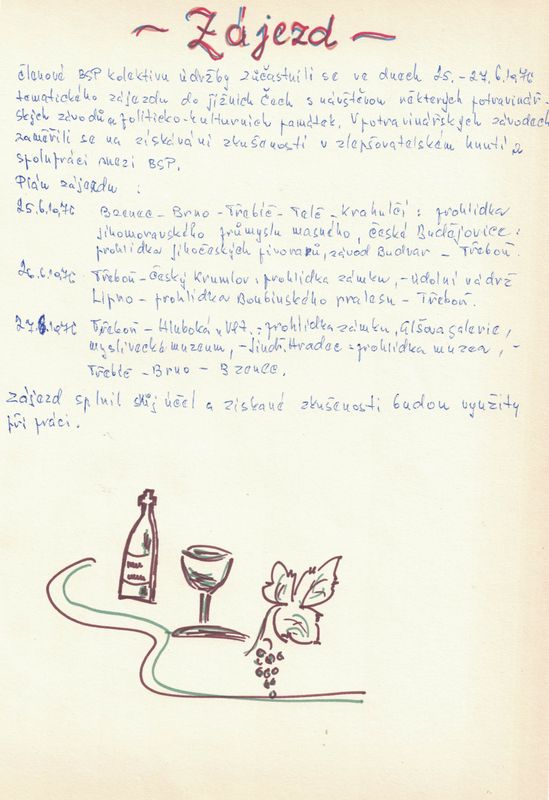 ~ Zájezd ~
členové BSP kolektivu údržby zúčastnili se ve dnech 25.-27.6.1976
tematického zájezdu do jižních Čech s návštěvou některých potravinář-
ských závodů a politicko-kulturních památek. V potravinářských závodech
zaměřili se na získávání zkušeností v zlepšovatelském hnutí a
spolupráci mezi BSP.
Plán zájezdu :
25.6.1976 Bzenec - Brno - Třebíč - Telč - Krahulčí : prohlídka
jihomoravského průmyslu masného, České Budějovice :
prohlídka jihočeských pivovarů, závod Budvar - Třeboň.
26.6.1976 Třeboň - Český Krumlov : prohlídka zámku, - údolní nádrž
Lipno - prohlídka Boubínského pralesu - Třeboň.
27.6.1976 Třeboň - Hluboká n Vlt. : prohlídka zámku, Alšova galerie,
myslivecké muzeum, - Jindř. Hradec : prohlídka muzea, -
Třebíč - Brno - Bzenec.
Zájezd splnil svůj účel a získané zkušenosti budou využity
při práci.